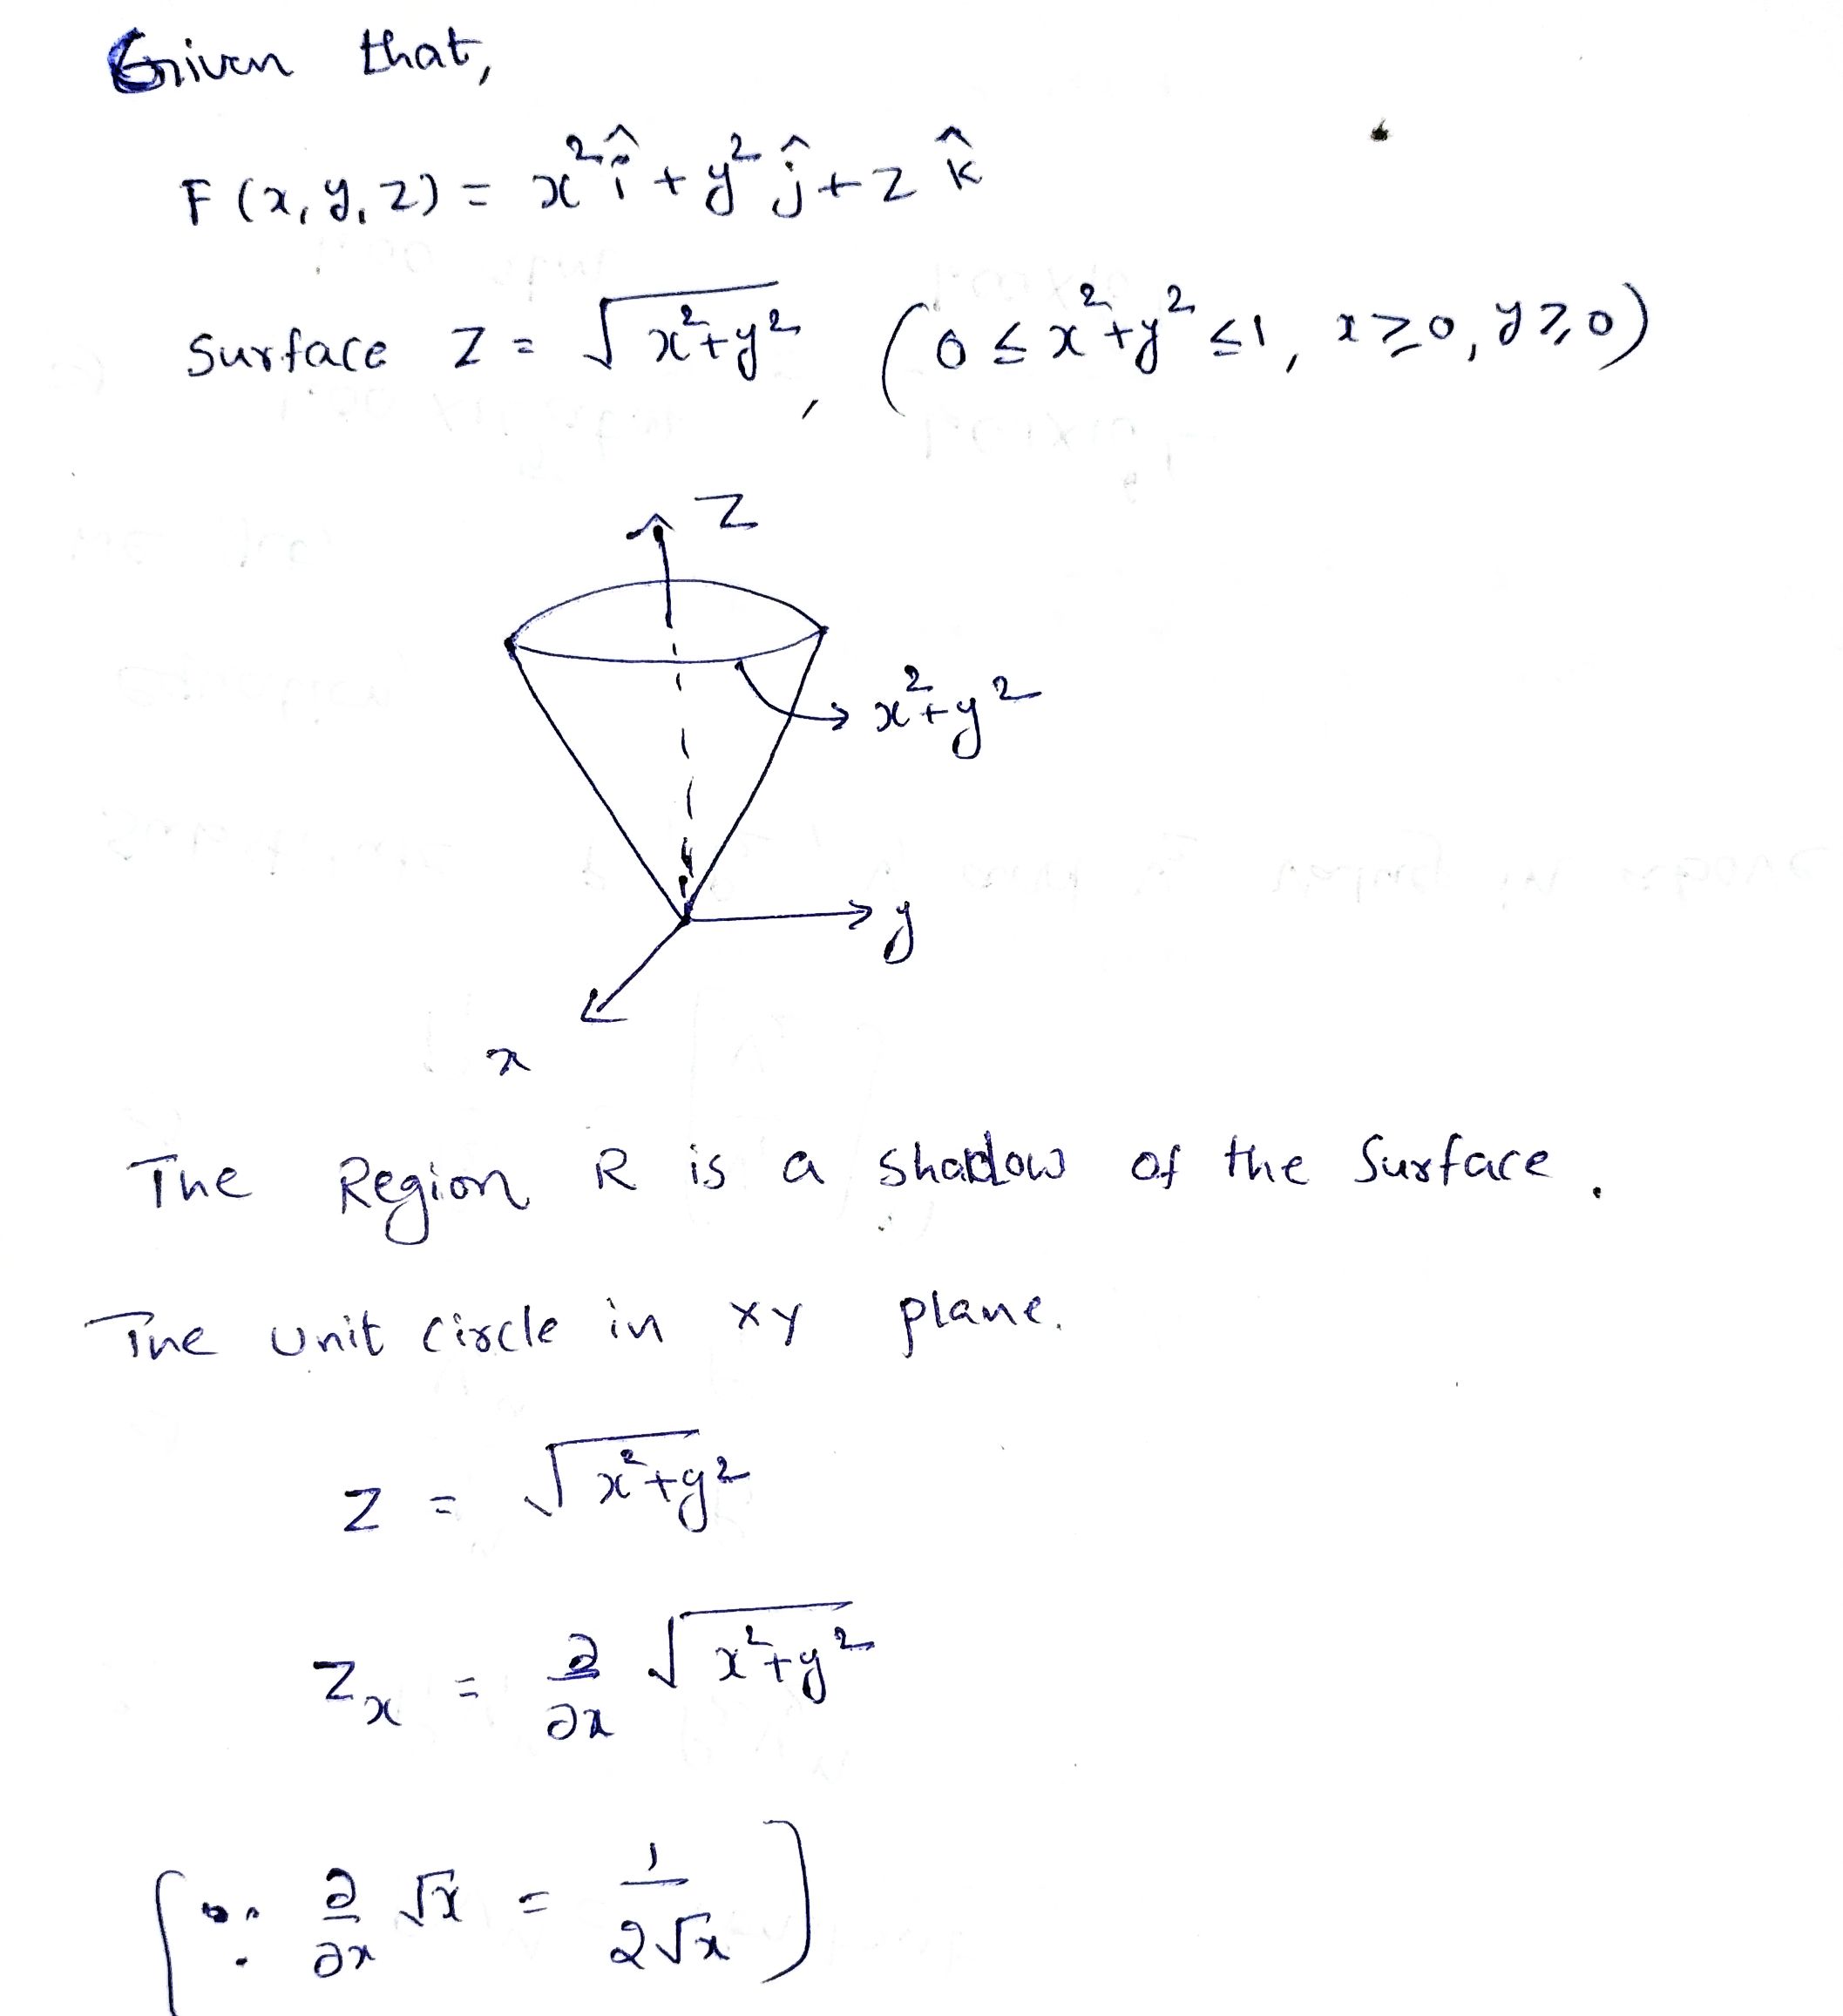 Given that,
F(x, y, z) = x² î + y² ĵ + z k̂
Surface z = √x²+y², (0 ≤ x²+y² ≤ 1, x ≥ 0, y ≥ 0)
Z
x²+y²
y
x
The Region R is a shadow of the Surface.
The unit circle in xy plane.
z = √x²+y²
Zx = ∂/∂x √x²+y²
(∵ ∂/∂x √x = 1/2√x)